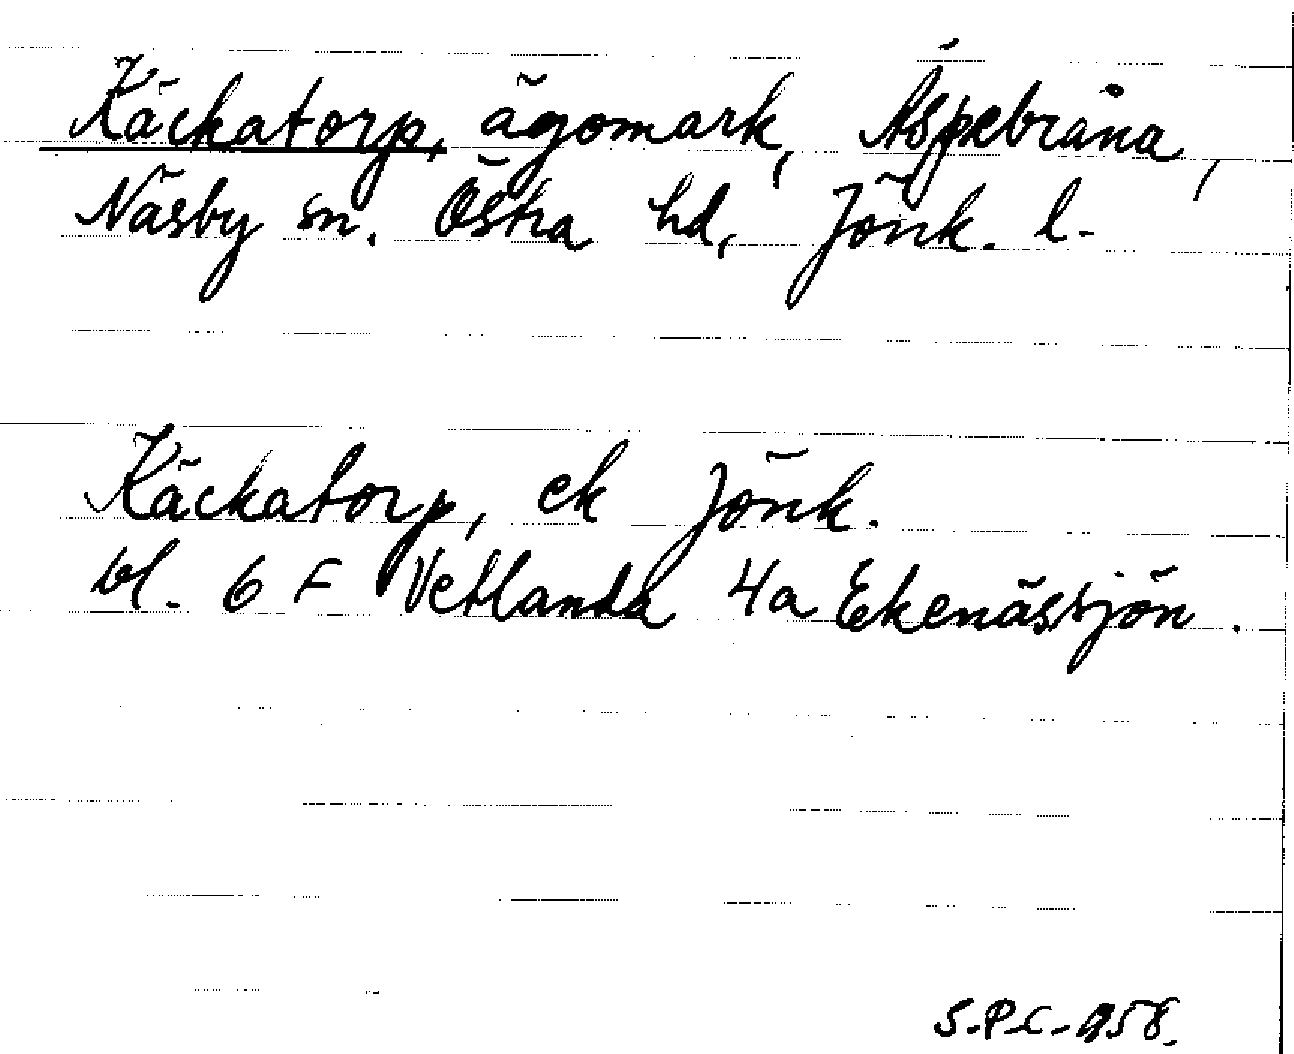 Käckatorp, ägomark, Aspebråna,
Näsby sn. Östra hd, Jönk. l.
Käckatorp, ek Jönk.
bl. 6 F Vetlanda 4a Ekenässjön.
S.P.C-958.